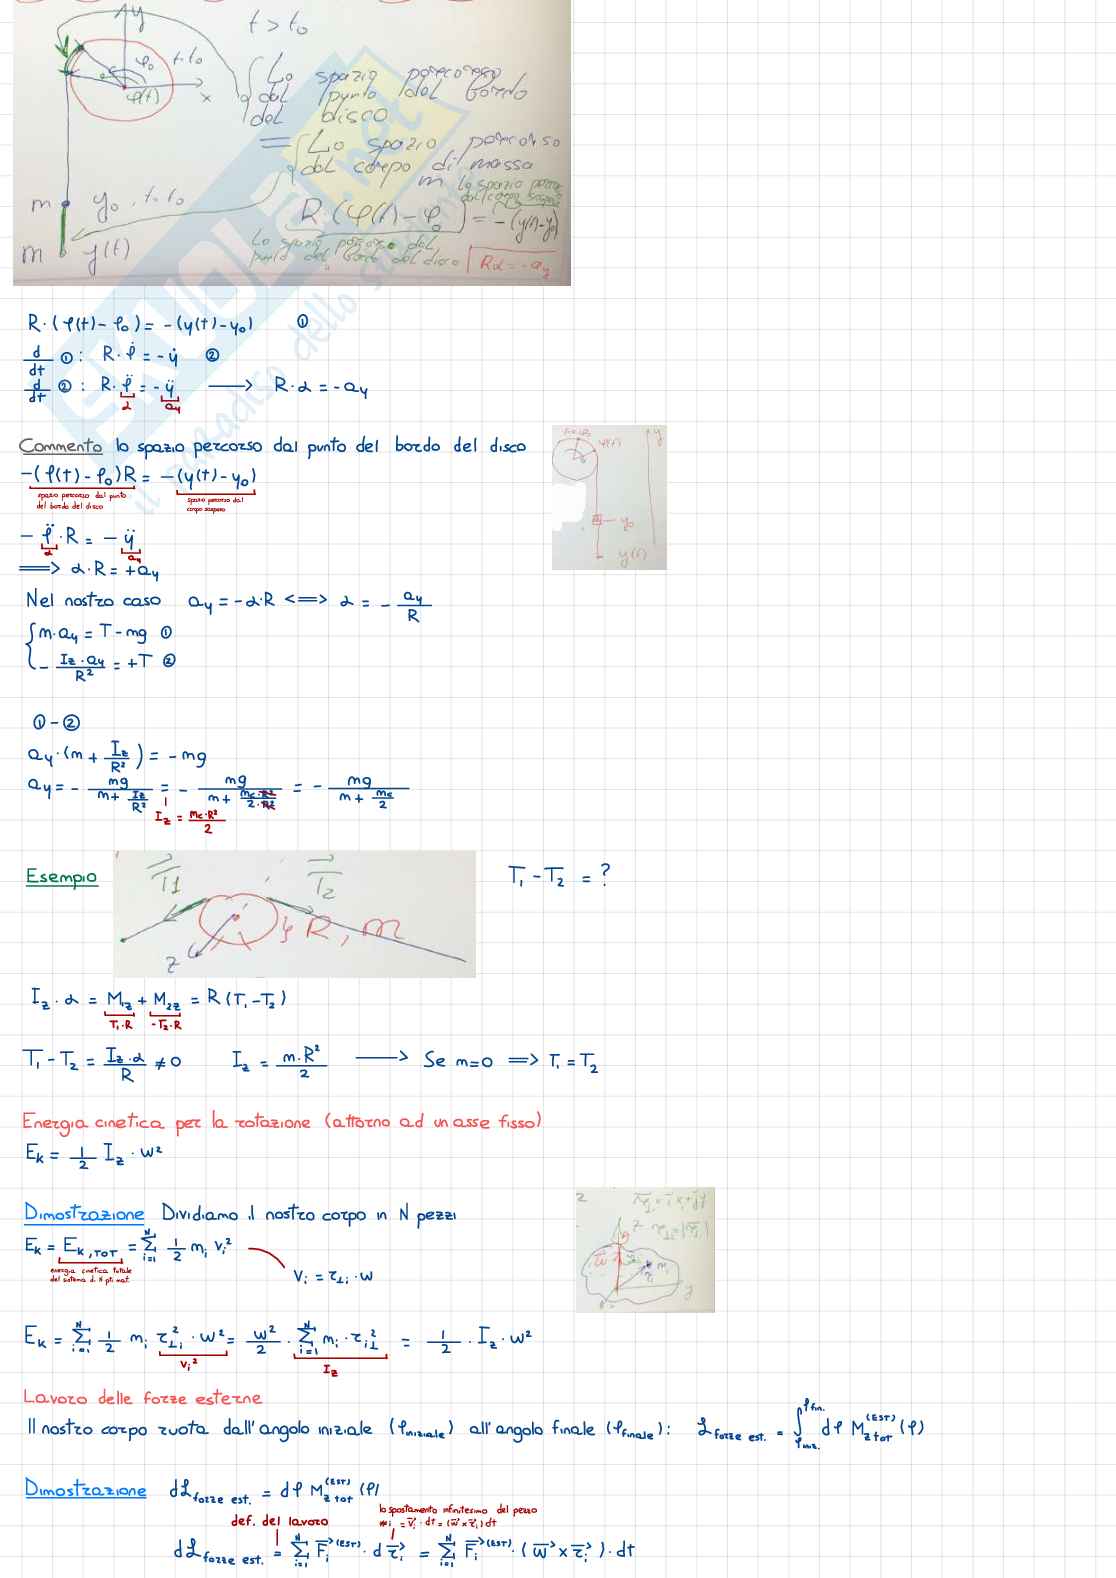 y
t > t₀
φ₀ t=t₀
φ(t)
x
Lo spazio percorso
dal punto del bordo
del disco
= Lo spazio percorso
dal corpo di massa
m
m y₀, t=t₀
R·(φ(t)-φ₀) = -(y(t)-y₀)
Lo spazio percorso dal
punto del bordo del disco
m y(t)
Rα = -a_y
R·(φ(t)-φ₀) = -(y(t)-y₀) ①
d/dt ①: R·φ̇ = -ẏ ②
d/dt ②: R·φ̈ = -ÿ ⟶ R·α = -a_y
α a_y
Commento lo spazio percorso dal punto del bordo del disco
-(φ(t)-φ₀)R = -(y(t)-y₀)
spazio percorso dal punto del bordo del disco
spazio percorso dal corpo sospeso
φ(t)
y
y₀
y(t)
-φ̈·R = -ÿ
α a_y
⟹ α·R = +a_y
Nel nostro caso a_y = -α·R ⟺ α = - a_y/R
{ m·a_y = T-mg ①
- I_z·a_y/R² = +T ②
①-②
a_y·(m + I_z/R²) = -mg
a_y = - mg/(m + I_z/R²) = - mg/(m + m_c·R²/2·R²) = - mg/(m + m_c/2)
I_z = m_c·R²/2
Esempio T₁-T₂ = ?
T1 T2
R, m
z
I_z·α = M₁z + M₂z = R(T₁-T₂)
T₁·R -T₂·R
T₁-T₂ = I_z·α/R ≠ 0 I_z = m·R²/2 ⟶ Se m=0 ⟹ T₁=T₂
Energia cinetica per la rotazione (attorno ad un asse fisso)
E_k = 1/2 I_z·w²
Dimostrazione Dividiamo il nostro corpo in N pezzi
E_k = E_k,TOT = Σ_{i=1}^{N} 1/2 m_i v_i²
energia cinetica totale
del sistema di N pti mat.
v_i = r_⊥i·w
z
w
m_i
r_i
y
E_k = Σ_{i=1}^{N} 1/2 m_i r_⊥i²·w² = w²/2·Σ_{i=1}^{N} m_i·r_i⊥² = 1/2·I_z·w²
v_i² I_z
Lavoro delle forze esterne
Il nostro corpo ruota dall'angolo iniziale (φ_iniziale) all'angolo finale (φ_finale): ℒ_forze est. = ∫_{φ_iniz.}^{φ_fin.} dφ M_{z tot}^{(EST)}(φ)
Dimostrazione dℒ_forze est. = dφ M_{z tot}^{(EST)}(φ)
def. del lavoro
lo spostamento infinitesimo del pezzo
#i = v⃗_i·dt = (w⃗×r⃗_i)dt
dℒ_forze est. = Σ_{i=1}^{N} F⃗_i^{(EST)}·dr⃗_i = Σ_{i=1}^{N} F⃗_i^{(EST)}·(w⃗×r⃗_i)·dt
SKUOLA.net
il paradiso dello studente